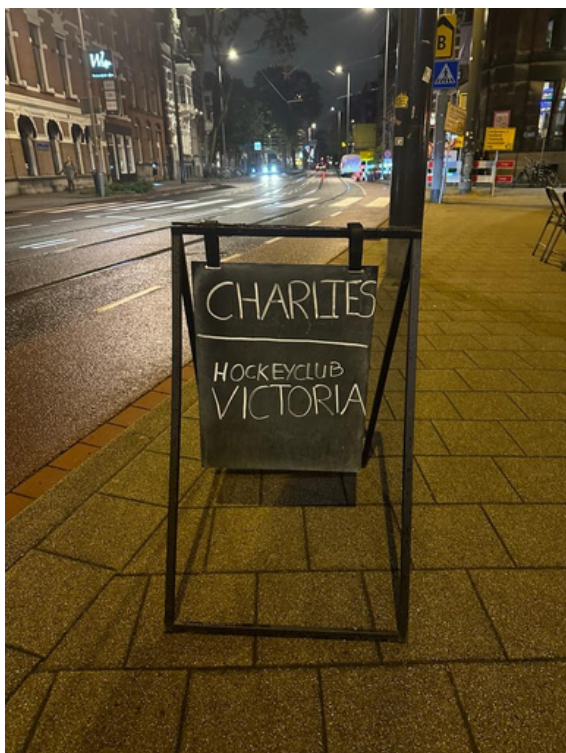 B
CHARLIES
HOCKEYCLUB
VICTORIA